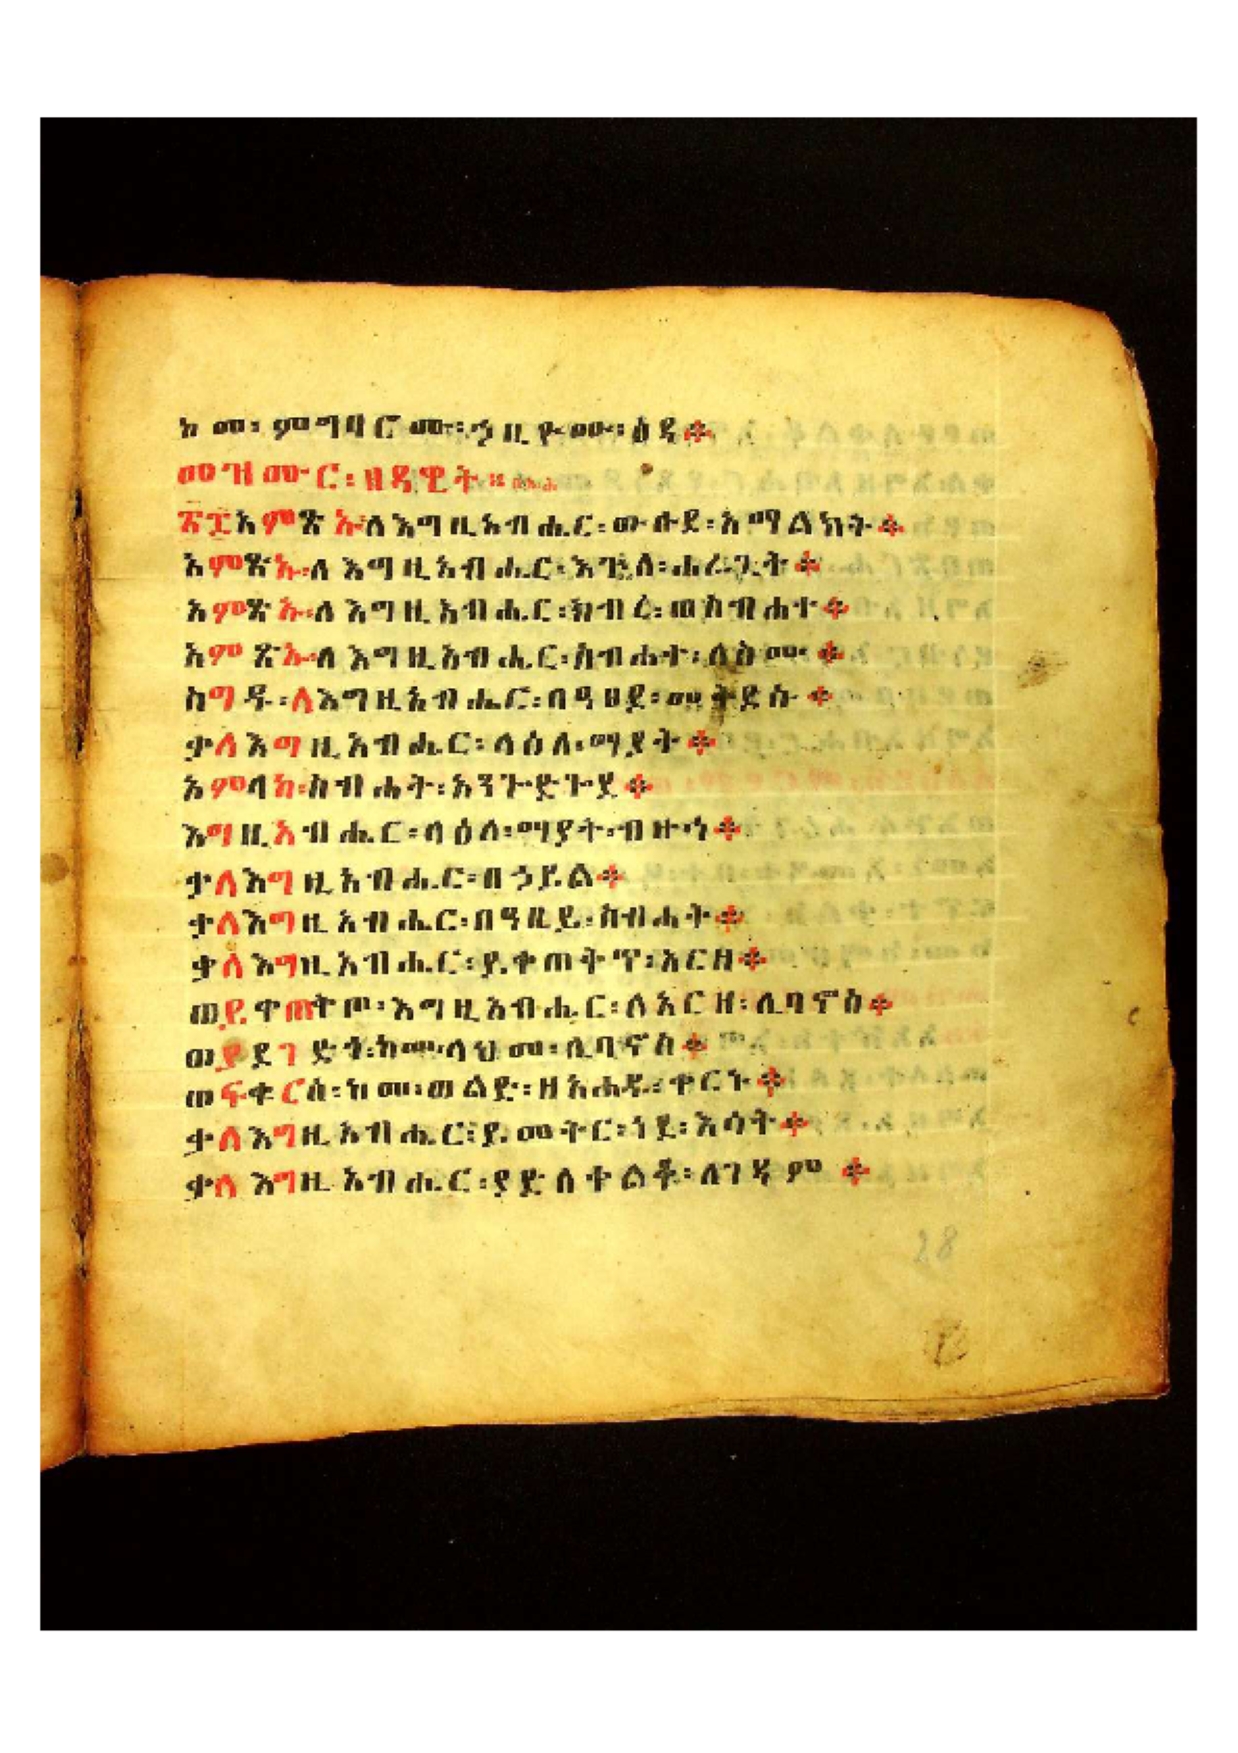 ከመ፡ ምግባሮሙ፡ ኀዚዮሙ፡ ዕዳ፨
መዝሙር፡ ዘዳዊት።
፳፰አምጽኡ፡ ለእግዚአብሔር፡ ውሉደ፡ አማልክት፨
አምጽኡ፡ ለእግዚአብሔር፡ እጒለ፡ ሐራጊት፨
አምጽኡ፡ ለእግዚአብሔር፡ ክብረ፡ ወስብሐተ፨
አምጽኡ፡ ለእግዚአብሔር፡ ስብሐተ፡ ለስሙ፨
ስግዱ፡ ለእግዚአብሔር፡ በዓፀደ፡ መቅደሱ፨
ቃለ እግዚአብሔር፡ ላዕለ፡ ማያት፨
አምላከ፡ ስብሐት፡ አንጐድጐደ፨
እግዚአብሔር፡ ላዕለ፡ ማያት፡ ብዙኅ፨
ቃለ እግዚአብሔር፡ በኃይል፨
ቃለ እግዚአብሔር፡ በዓቢይ፡ ስብሐት፨
ቃለ እግዚአብሔር፡ ይቀጠቅጥ፡ አርዘ፨
ወይቀጠቅጦ፡ እግዚአብሔር፡ ለአርዘ፡ ሊባኖስ፨
ወያደገድጎ፡ ከመ፡ ላህመ፡ ሊባኖስ፨
ወፍቁርሰ፡ ከመ፡ ወልድ፡ ዘአሐዱ፡ ቀርኑ፨
ቃለ እግዚአብሔር፡ ይመትር፡ ነደ፡ እሳት፨
ቃለ እግዚአብሔር፡ ያድለቀልቆ፡ ለገዳም፨
28